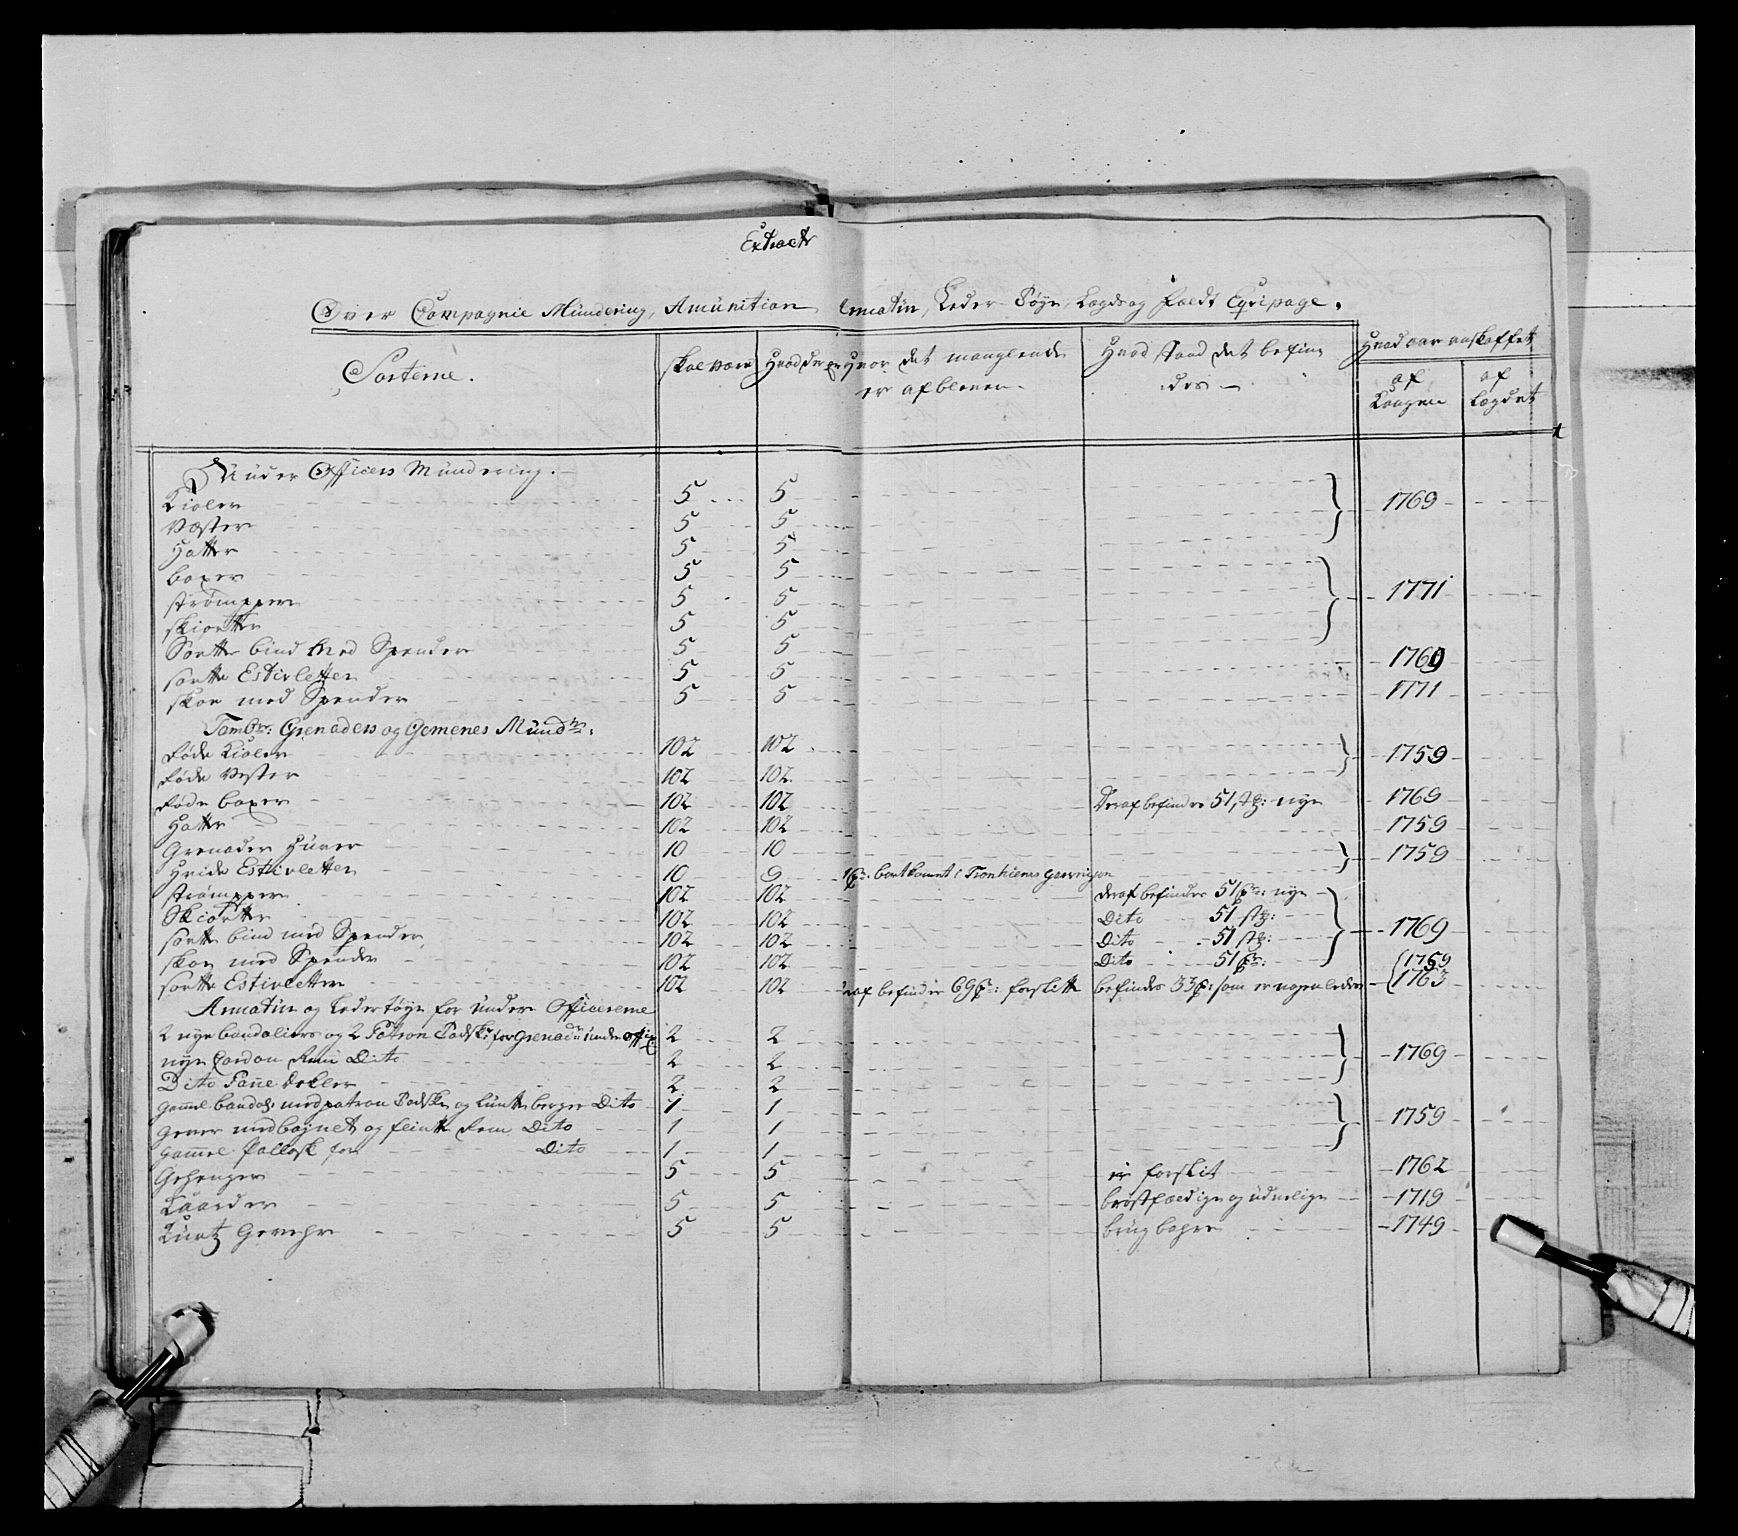 Extract
Over Compagnie Mundering, Amunition, Armatur, Leder Tøye, Lægds og Feldt Eqvipage.
Sorterne. skal være Hvad der er Hvor det manglende er afbleven. Hvad stand det befindes Hvad aar anskaffet
af Kongen af Lægdet
Under Officers Mundering.
Kioler 5 5
Væster 5 5 1769
Hatter 5 5
boxer 5 5
strømpper 5 5 1771
skiortter 5 5
Sortte bind med Spender 5 5 1769
sortte Estivletter 5 5
skoe med Spender 5 5 1771
Tambr: Grenaders og Gemenes Mund:
Røde Kioler 102 102 1759
Røde Vester 102 102
Røde boxer 102 102 Deraf befindes 51 stk: nye 1769
Hatte 102 102 1759
Grenader Huver 10 10 1759
Hvide Estivletter 10 9 1 pr. bortkomet i Tronhiems Guarnison
strømpper 102 102 deraf befindes 51 pr: nye
Skiortter 102 102 Dito 51 stk: 1769
sortte bind med Spender 102 102 Dito 51 stk:
skoe med Spender 102 102 Dito 51 pr: 1769
sortte Estivletter 102 102 deraf befindes 69 pr: forslitt befindes 33 pr: som er nogenledes 1763
Armatur og Ledertøye for Under Officererne
2 nye bandoliers og 2 Patron Tadsker for Grenadr under offic: 2 2
nye Cordon Rem Dito 2 2 1769
Dito Panne deller 2 2
gammel bandol: med patron Tadske og Luntte berger Dito 1 1
gever med bajonet og flintte Rem Dito 1 1 1759
gammel Pallask for Dito 1 1
Gehenger 5 5 er forslit 1762
Kaarder 5 5 brøstfældige og uduelige 1719
Kurtz Gevehr 5 5 brugbahre 1749